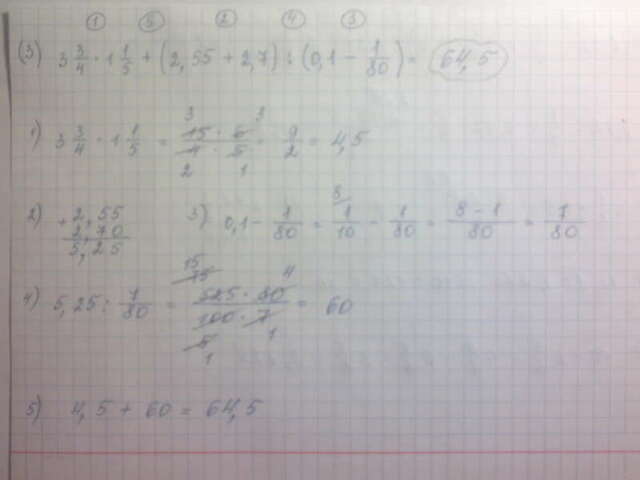 1 5 2 4 3
(3) 3 3/4 · 1 1/5 + (2,55 + 2,7) : (0,1 − 1/80) = 64,5
1) 3 3/4 · 1 1/5 = 15 · 6 / 4 · 5 = 9/2 = 4,5
3 3
2 1
2) + 2,55
2,70
5,25
3) 0,1 − 1/80 = 1/10 − 1/80 = 8 − 1/80 = 7/80
8
4) 5,25 : 7/80 = 525 · 80 / 100 · 7 = 60
15
75 4
5 1
1
5) 4,5 + 60 = 64,5